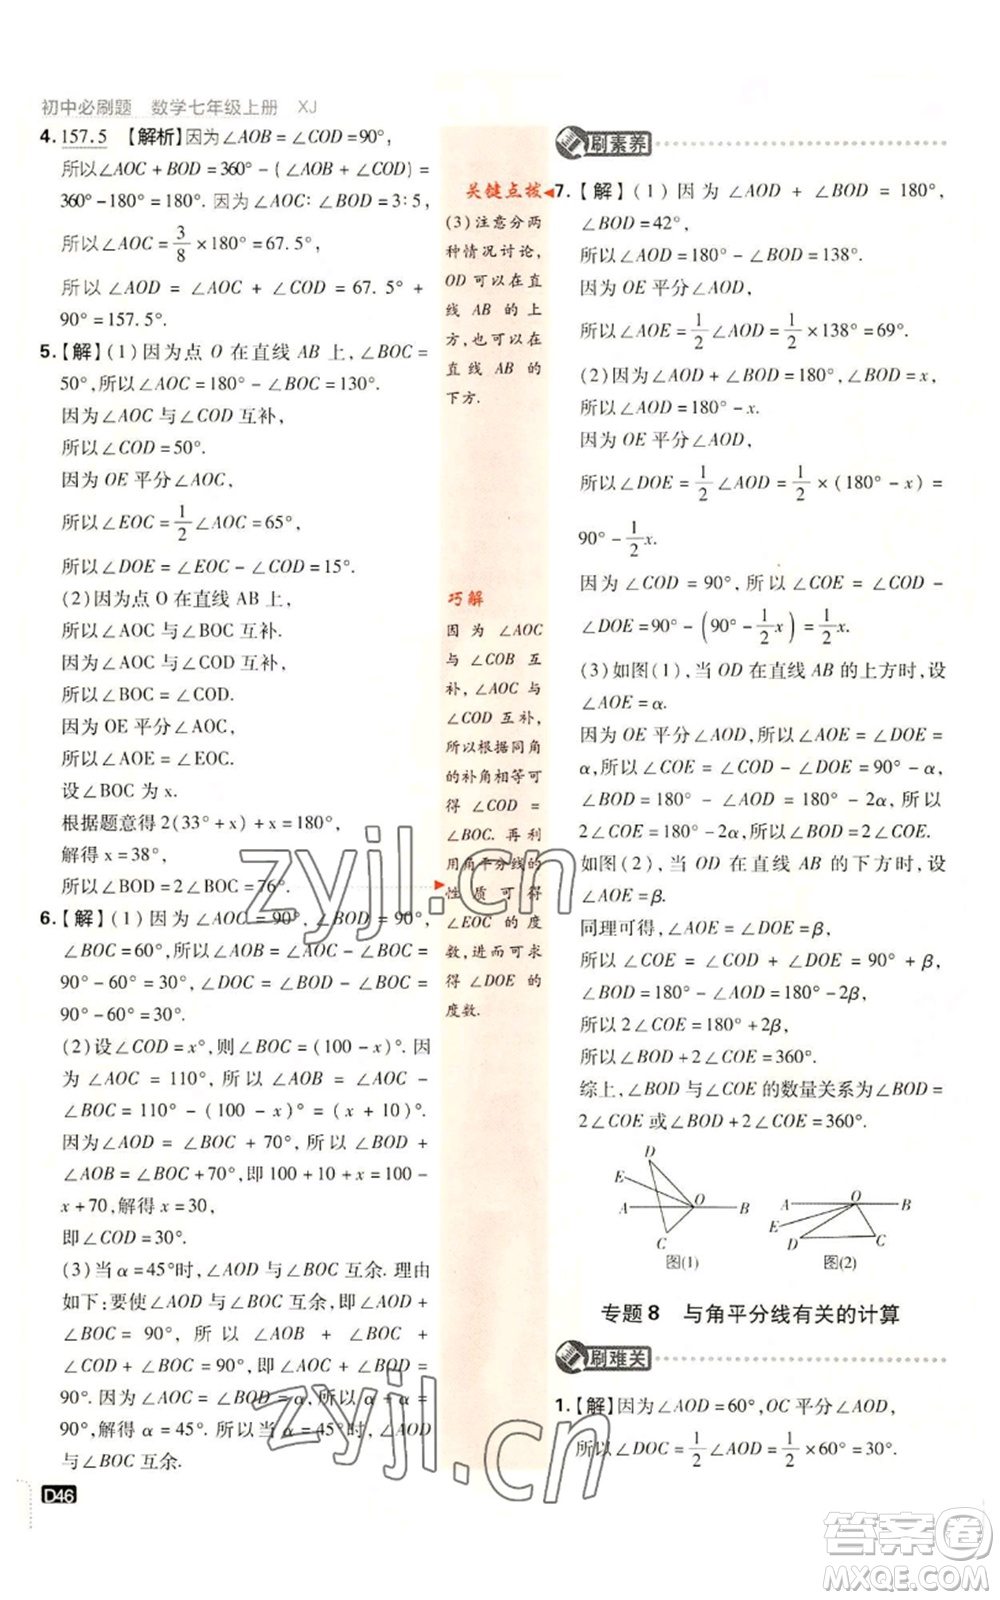 初中必刷题 数学七年级上册 XJ
4. 157.5 【解析】因为∠AOB=∠COD=90°,
所以∠AOC+∠BOD=360°-(∠AOB+∠COD)=
360°-180°=180°. 因为∠AOC:∠BOD=3:5,
所以∠AOC=3/8×180°=67.5°,
所以∠AOD=∠AOC+∠COD=67.5°+
90°=157.5°.
5.【解】(1)因为点O在直线AB上,∠BOC=
50°,所以∠AOC=180°-∠BOC=130°.
因为∠AOC与∠COD互补,
所以∠COD=50°.
因为OE平分∠AOC,
所以∠EOC=1/2∠AOC=65°,
所以∠DOE=∠EOC-∠COD=15°.
(2)因为点O在直线AB上,
所以∠AOC与∠BOC互补.
因为∠AOC与∠COD互补,
所以∠BOC=∠COD.
因为OE平分∠AOC,
所以∠AOE=∠EOC.
设∠BOC为x.
根据题意得2(33°+x)+x=180°,
解得x=38°,
所以∠BOD=2∠BOC=76°.
6.【解】(1)因为∠AOC=90°,∠BOD=90°,
∠BOC=60°,所以∠AOB=∠AOC-∠BOC=
90°-60°=30°,∠DOC=∠BOD-∠BOC=
90°-60°=30°.
(2)设∠COD=x°,则∠BOC=(100-x)°. 因
为∠AOC=110°,所以∠AOB=∠AOC-
∠BOC=110°-(100-x)°=(10+x)°.
因为∠AOD=∠BOC+70°,所以∠BOD+
∠AOB=∠BOC+70°,即100+10+x=100-
x+70,解得x=30,
即∠COD=30°.
(3)当α=45°时,∠AOD与∠BOC互余. 理由
如下:要使∠AOD与∠BOC互余,即∠AOD+
∠BOC=90°,所以∠AOB+∠BOC+∠COD+
∠BOC=90°,即∠AOC+∠BOD=
90°. 因为∠AOC=∠BOD=α,所以α+α=
90°,解得α=45°. 所以当α=45°时,∠AOD
与∠BOC互余.
D46
关键点拨
(3)注意分两
种情况讨论,
OD可以在直
线AB的上
方,也可以在
直线AB的
下方.
巧解
因为∠AOC
与∠COB互
补,∠AOC与
∠COD互补,
所以根据同角
的补角相等可
得∠COD=
∠BOC.再利
用角平分线的
性质可得
∠EOC的度
数,进而可求
得∠DOE的
度数.
刷素养
7.【解】(1)因为∠AOD+∠BOD=180°,
∠BOD=42°,
所以∠AOD=180°-∠BOD=138°.
因为OE平分∠AOD,
所以∠AOE=1/2∠AOD=1/2×138°=69°.
(2)因为∠AOD+∠BOD=180°,∠BOD=x,
所以∠AOD=180°-x.
因为OE平分∠AOD,
所以∠DOE=1/2∠AOD=1/2×(180°-x)=
90°-1/2x.
因为∠COD=90°,所以∠COE=∠COD-
∠DOE=90°-(90°-1/2x)=1/2x.
(3)如图(1),当OD在直线AB的上方时,设
∠AOE=α.
因为OE平分∠AOD,所以∠AOE=∠DOE=
α,所以∠COE=∠COD-∠DOE=90°-α,
∠BOD=180°-∠AOD=180°-2α,所以
2∠COE=180°-2α=∠BOD.
如图(2),当OD在直线AB的下方时,设
∠AOE=β.
同理可得,∠AOE=∠DOE=β,
所以∠COE=∠COD+∠DOE=90°+β,
∠BOD=180°-∠AOD=180°-2β,
所以2∠COE=180°+2β,
所以∠BOD+2∠COE=360°.
综上,∠BOD与∠COE的数量关系为∠BOD=
2∠COE或∠BOD+2∠COE=360°.
D
E
A O B
C
图(1)
A O B
E
D C
图(2)
专题8 与角平分线有关的计算
刷难关
1.【解】因为∠AOD=60°,OC平分∠AOD,
所以∠DOC=1/2∠AOD=1/2×60°=30°.
zyjl.cn
zyjl.cn
答案圈
MXQE.COM